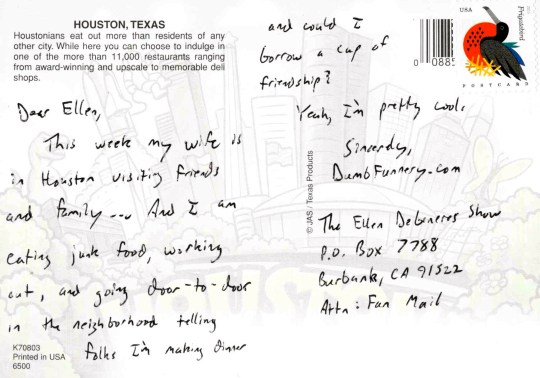 HOUSTON, TEXAS
Houstonians eat out more than residents of any
other city. While here you can choose to indulge in
one of the more than 11,000 restaurants ranging
from award-winning and upscale to memorable deli
shops.
Dear Ellen,
This week my wife is
in Houston visiting friends
and family... And I am
eating junk food, working
out, and going door-to-door
in the neighborhood telling
folks I'm making dinner
K70803
Printed in USA
6500
and could I
borrow a cup of
friendship?
Yeah, I'm pretty cool.
Sincerely,
DumbFunnery.com
© JAS / Texas Products
The Ellen Degeneres Show
P.O. Box 7788
Burbank, CA 91522
Attn: Fan Mail
USA
POSTCARD
0088